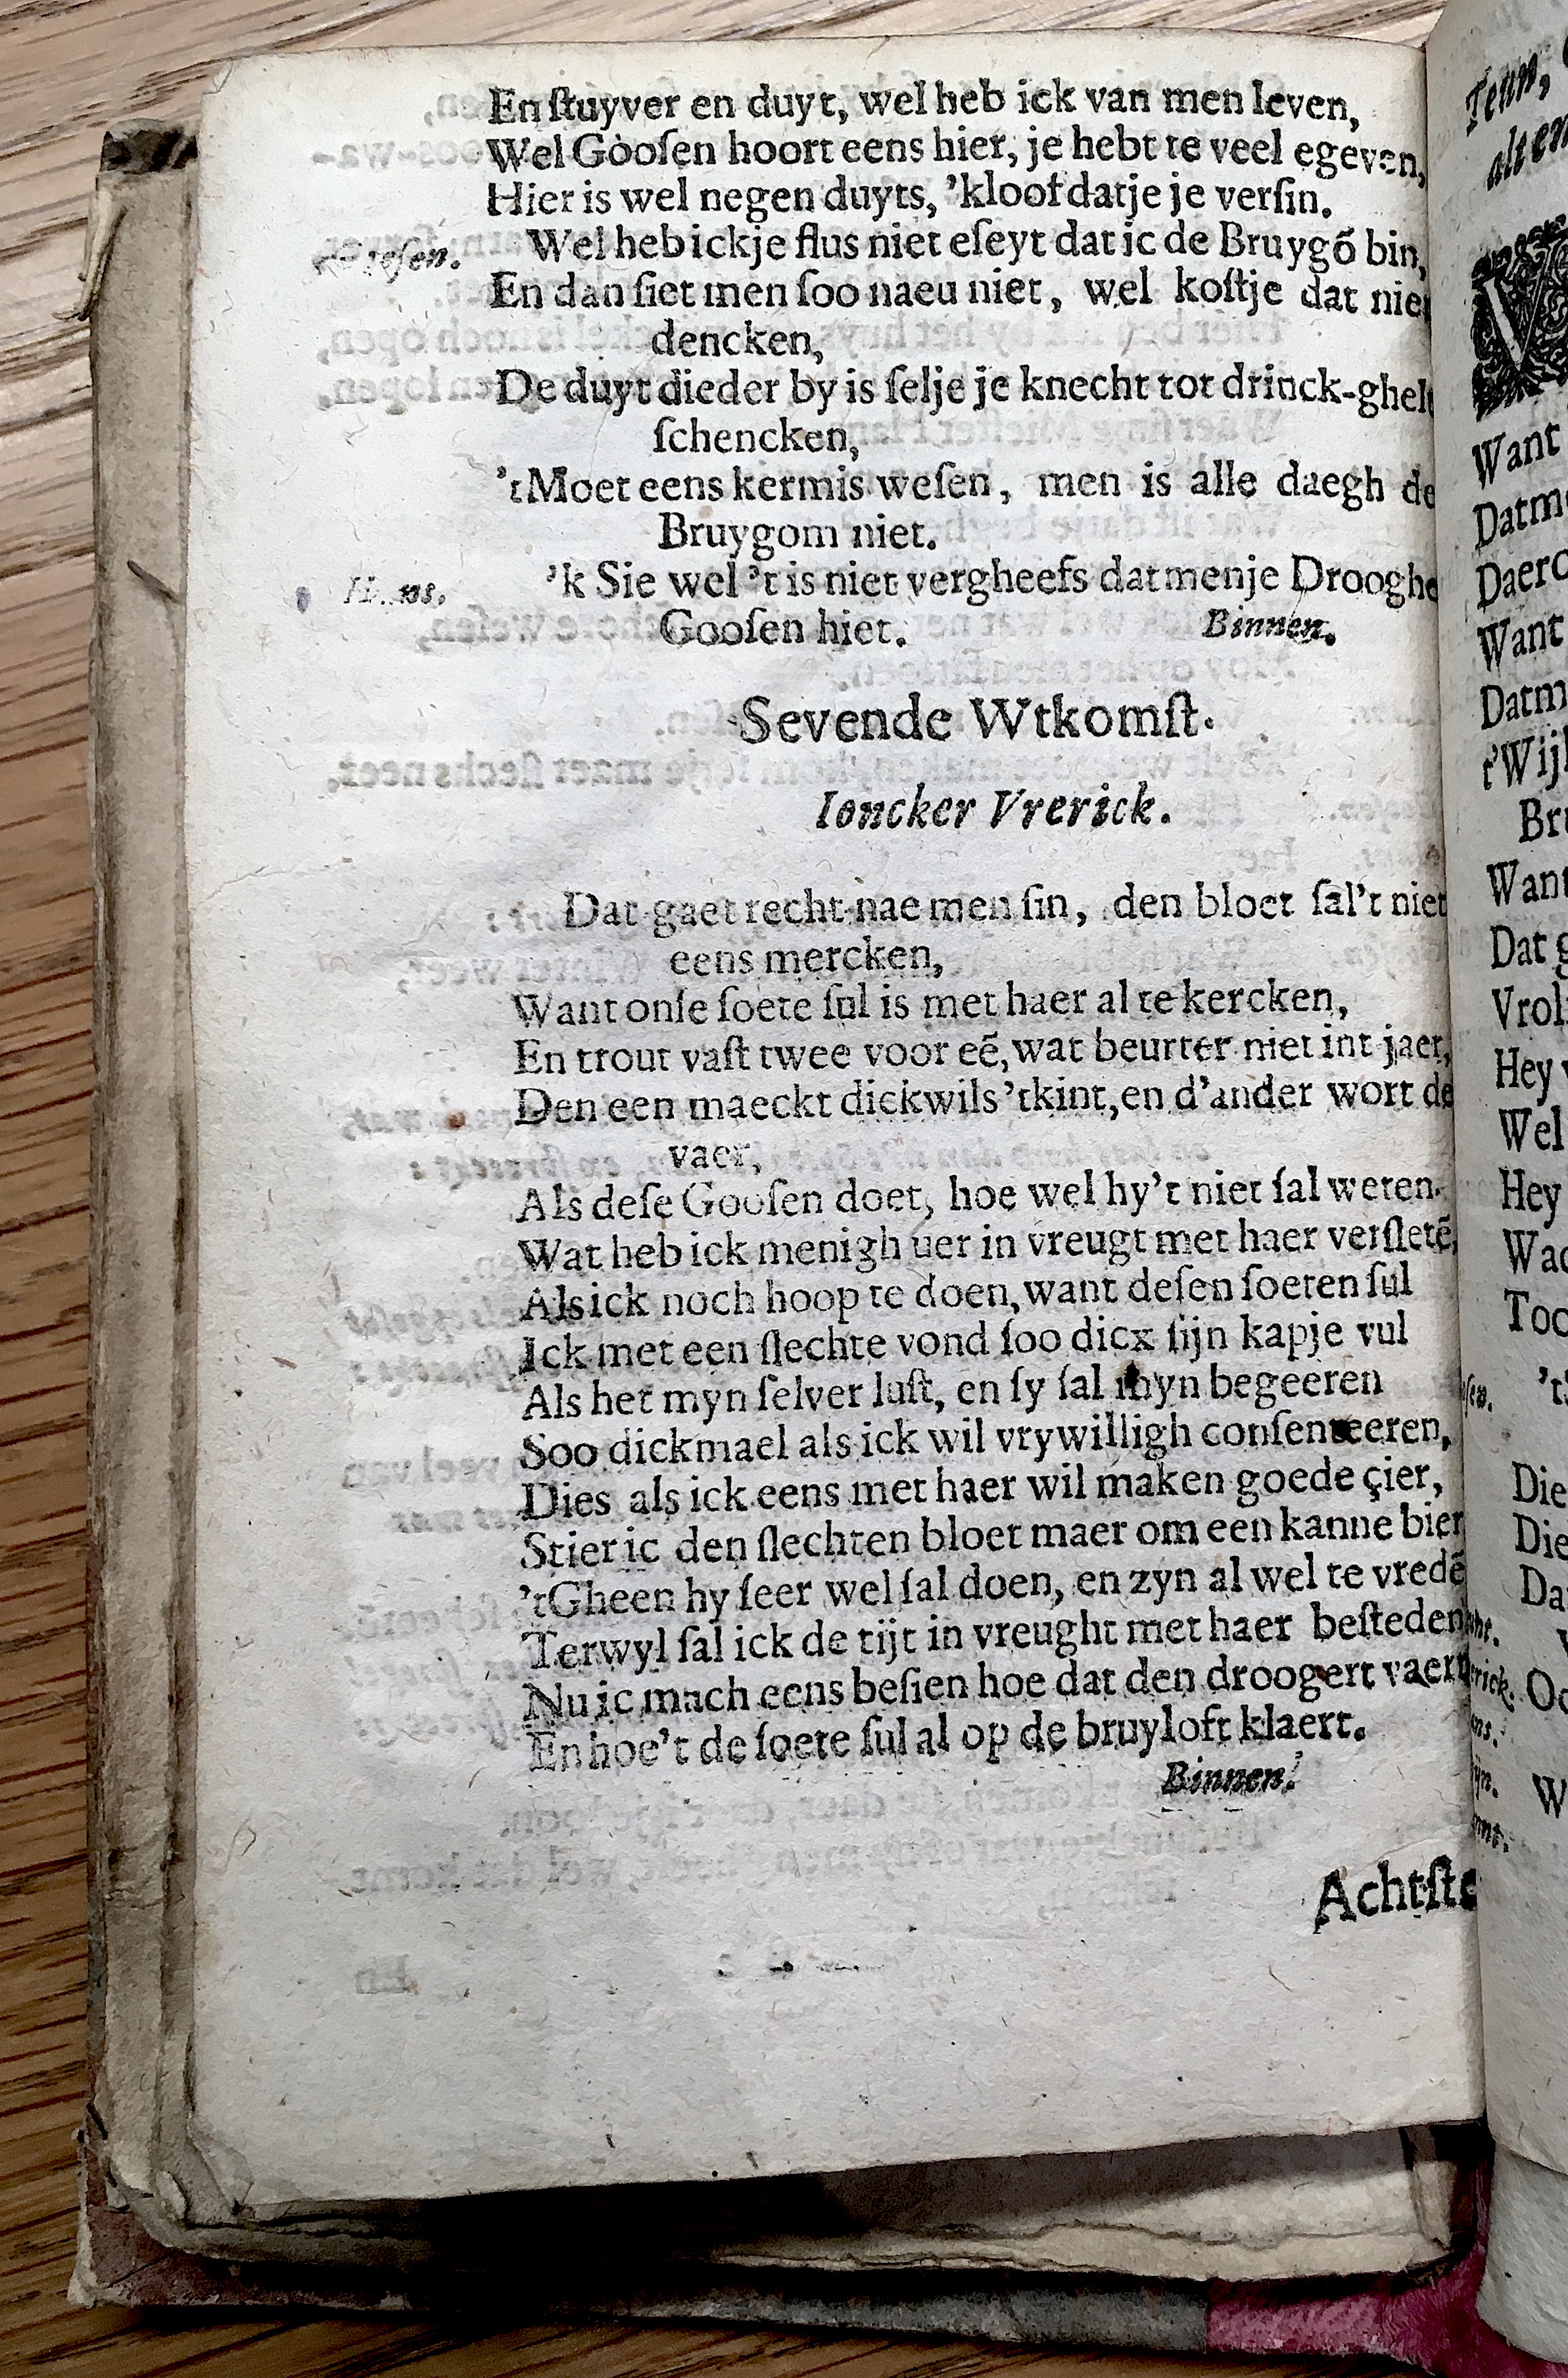 En ſtuyver en duyt, wel heb ick van men leven,
Wel Gooſen hoort eens hier, je hebt te veel egeven,
Hier is wel negen duyts, 'kloof datje je verſin.
Wel heb ickje flus niet eſeyt dat ic de Bruygõ bin,
En dan ſiet men ſoo naeu niet, wel koſtje dat
dencken,
De duyt dieder by is ſelje je knecht tot drinck-ghelt
ſchencken,
't Moet eens kermis weſen, men is alle daegh de
Bruygom niet.
'k Sie wel 't is niet vergheefs datmenje Drooghe
Gooſen hiet. Binnen.
Sevende Wtkomſt.
Ioncker Vrerick.
Dat gaet recht nae men ſin, den bloet ſal't niet
eens mercken,
Want onſe ſoete ſul is met haer al te kercken,
En trout vaſt twee voor eẽ, wat beurter niet int jaer,
Den een maeckt dickwils 'tkint, en d'ander wort de
vaer,
Als deſe Gooſen doet, hoe wel hy't niet ſal weten.
Wat heb ick menigh uer in vreugt met haer verſletẽ,
Als ick noch hoop te doen, want deſen ſoeten ſul
Ick met een ſlechte vond ſoo dicx ſijn kapje vul
Als het myn ſelver luſt, en ſy ſal myn begeeren
Soo dickmael als ick wil vrywilligh conſenteeren,
Dies als ick eens met haer wil maken goede çier,
Stier ic den ſlechten bloet maer om een kanne bier
'tGheen hy ſeer wel ſal doen, en zyn al wel te vredẽ
Terwyl ſal ick de tijt in vreught met haer beſteden
Nu ic mach eens beſien hoe dat den droogert vaert
En hoe't de ſoete ſul al op de bruyloft klaert.
Binnen.
Achtſte
Want
Want
Want
Dat
Hey
Wel
Hey
Die
Die